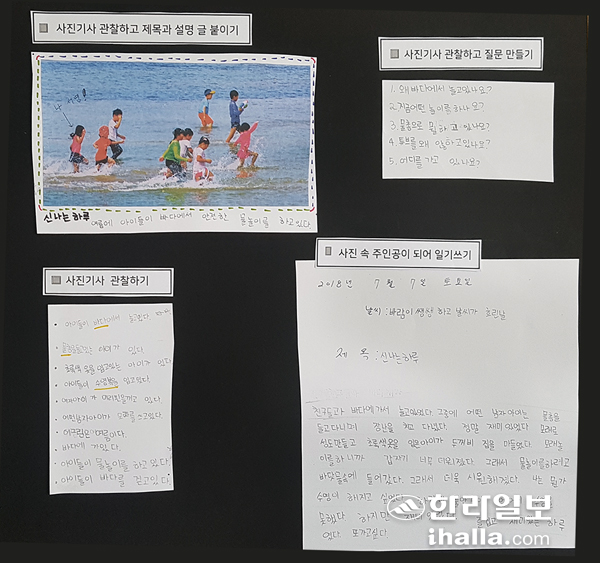 사진기사 관찰하고 제목과 설명 글 붙이기
나 서영!
신나는 하루
여름에 아이들이 바다에서 안전한 물놀이를 하고있다
사진기사 관찰하고 질문 만들기
1. 왜 바다에서 놀고있나요?
2. 지금 어떤 놀이를 하나요?
3. 물총으로 뭘 하고 있나요?
4. 튜브를 왜 안하고있나요?
5. 어디를 가고 있나요?
사진기사 관찰하기
· 아이들이 바다에서 놀고있다
· 물총을 들고있는 아이가 있다.
· 초록색 옷을 입고있는 아이가 있다
· 아이들이 수영복을 입고있다.
· 여자아이가 머리띠를 끼고 있다.
· 어떤남자아이가 모자를 쓰고있다.
· 여름이다.
· 바다에 가있다.
· 아이들이 물놀이를 하고 있다
· 아이들이 바다를 걷고있다
사진 속 주인공이 되어 일기쓰기
2018년 7월 7일 토요일
날씨: 바람이 쌩쌩 하고 날씨가 흐린날
제 목: 신나는하루
친구들과 바다에가서 놀고있었다. 그중에 어떤 남자아이는 물총을
들고다니며 장난을 치고 다녔다. 정말 재미있었다. 모래로
성도만들고 초록색옷을 입은아이가 두꺼비 집을 만들었다. 모래놀
이를하니까 갑자기 너무 더워졌다. 그래서 물놀이를하려고
바닷물속에 들어갔다. 그래서 더욱 시원해졌다. 나는 뭔가
수영이 하고 싶었다.
못했다. 하지만 재미있는 하루
였다. 또가고싶다.
한라일보
ihalla.com